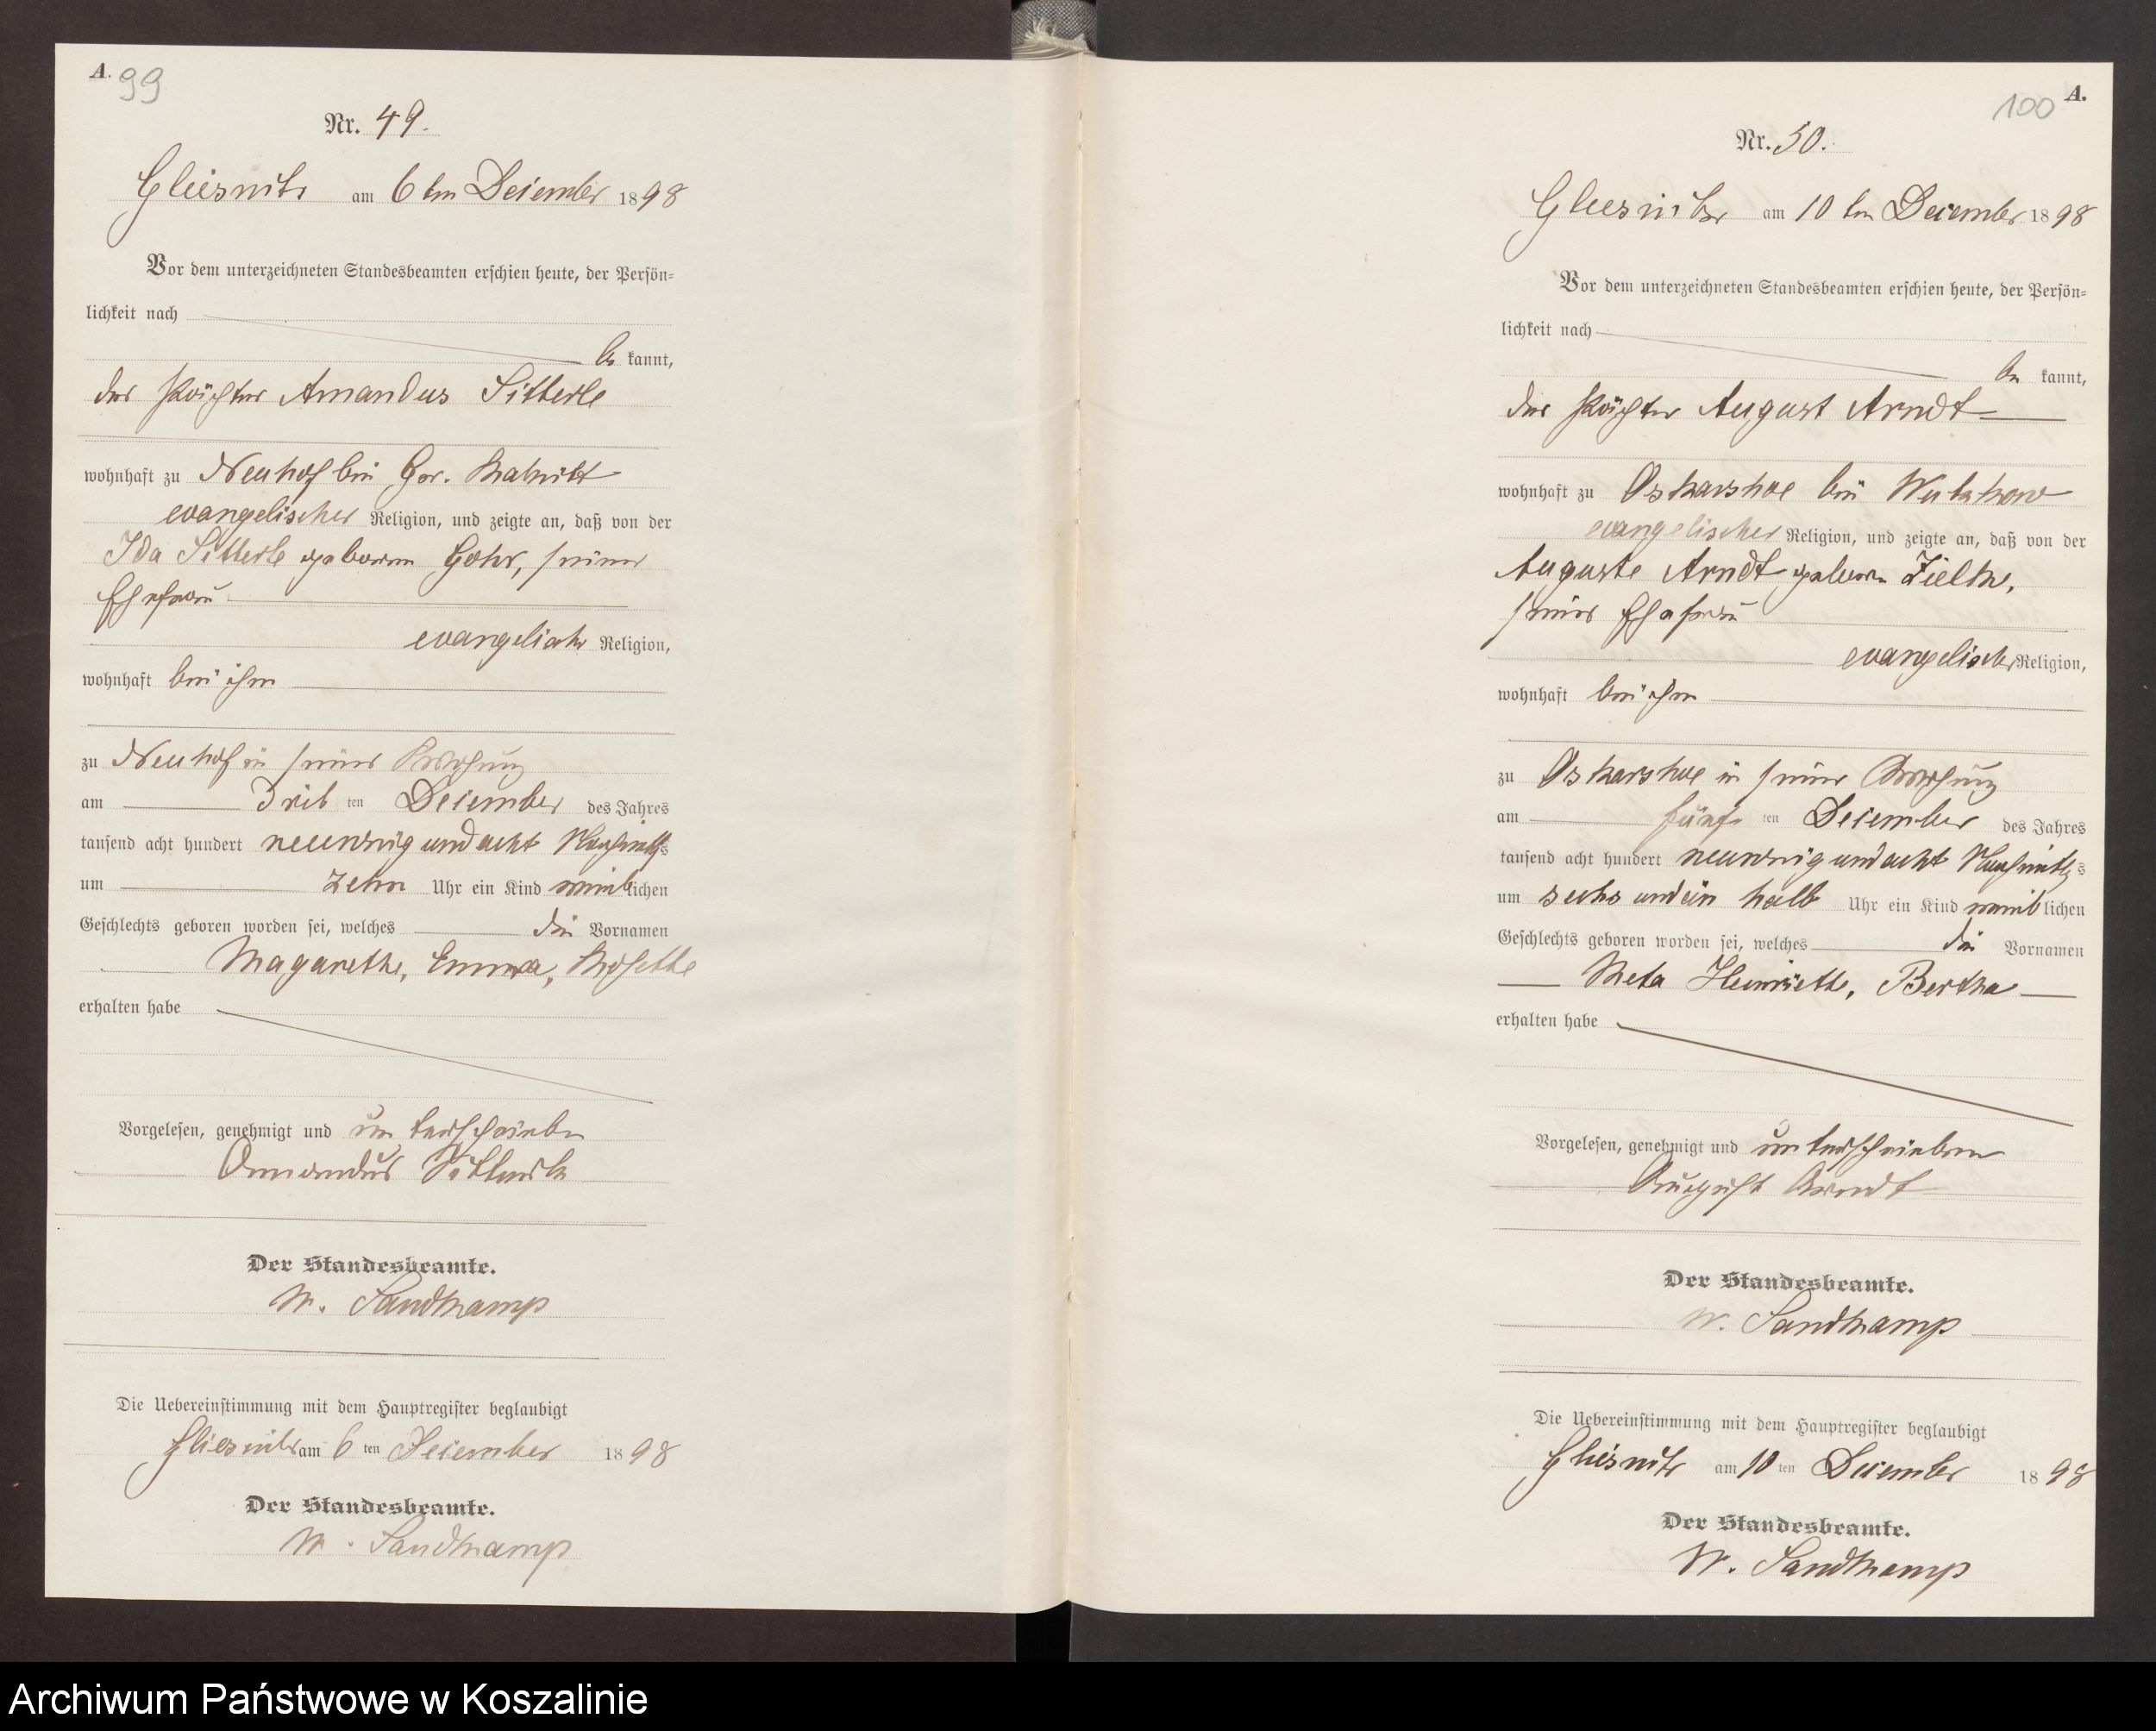 A. 99
Nr. 49.
Gliesnitz am 6 ten Dezember 1898
Vor dem unterzeichneten Standesbeamten erschien heute, der Persön=
lichkeit nach
be kannt,
der Pächter Amandus Sitterle
wohnhaft zu Neuhof bei Gr.
evangelischer Religion, und zeigte an, daß von der
Ida Sitterle geboren Gohr, seiner
Ehefrau
evangelischer Religion,
wohnhaft bei ihm
zu Neuhof in seiner Wohnung
am drit ten Dezember des Jahres
tausend acht hundert neunzig und acht Nachmittags
um zehn Uhr ein Kind weiblichen
Geschlechts geboren worden sei, welches die Vornamen
Magarethe, Emma,
erhalten habe
Vorgelesen, genehmigt und unterschrieben
Amandus Sitterle
Der Standesbeamte.
W. Sandkamp
Die Uebereinstimmung mit dem Hauptregister beglaubigt
Gliesnitz am 6 ten Dezember 1898
Der Standesbeamte.
W. Sandkamp
100 A.
Nr. 50.
Gliesnitz am 10 ten Dezember 1898
Vor dem unterzeichneten Standesbeamten erschien heute, der Persön=
lichkeit nach
be kannt,
der Pächter August Arndt
wohnhaft zu Oskarshoe bei Wutzkow
evangelischer Religion, und zeigte an, daß von der
Auguste Arndt geboren Zielke,
seiner Ehefrau
evangelischer Religion,
wohnhaft bei ihm
zu Oskarshoe in seiner Wohnung
am fünf ten Dezember des Jahres
tausend acht hundert neunzig und acht Nachmittags
um sechs und ein halb Uhr ein Kind weiblichen
Geschlechts geboren worden sei, welches die Vornamen
Meta Henriette, Bertha
erhalten habe
Vorgelesen, genehmigt und unterschrieben
August Arndt
Der Standesbeamte.
W. Sandkamp
Die Uebereinstimmung mit dem Hauptregister beglaubigt
Gliesnitz am 10 ten Dezember 1898
Der Standesbeamte.
W. Sandkamp
Archiwum Państwowe w Koszalinie